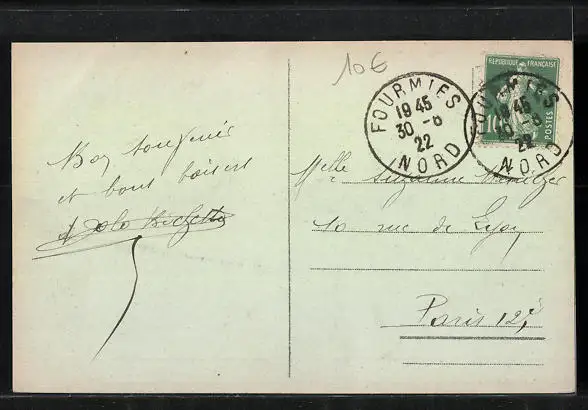 10€
REPUBLIQUE FRANÇAISE
POSTES
10
FOURMIES
19 45
30 - 8
22
NORD
FOURMIES
19 45
30 - 8
22
NORD
Bon souvenir
et bons baisers
Melle Suzanne
10 rue de Lyon
Paris 12è